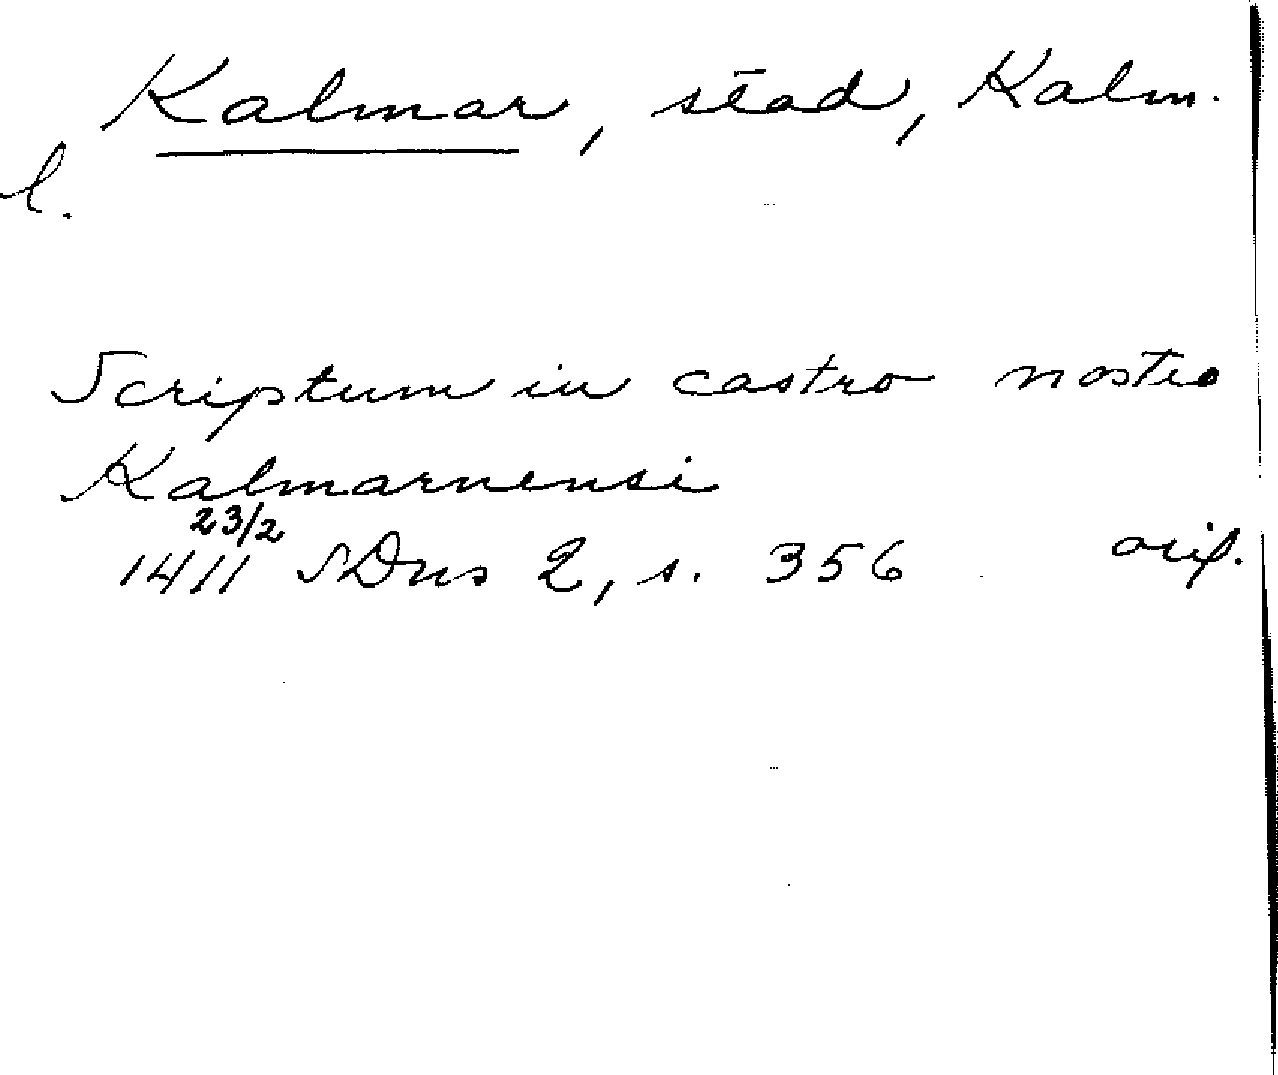 Kalmar, stad, Kalm.
l.
Scriptum in castro nostro
Kalmarnensi
23/2
1411 SDns 2, s. 356 orig.